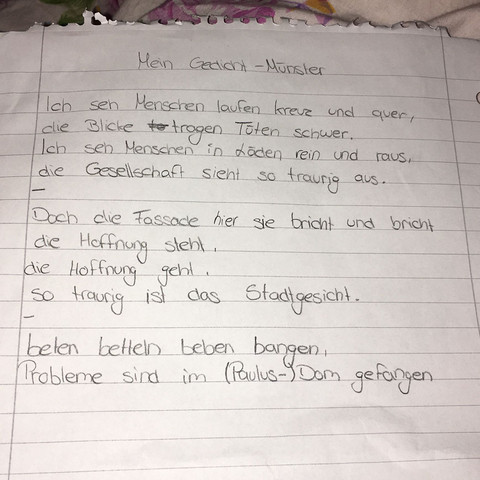 Mein Gedicht - Münster
Ich seh Menschen laufen kreuz und quer,
die Blicke tragen Tüten schwer.
Ich seh Menschen in Läden rein und raus,
die Gesellschaft sieht so traurig aus.
–
Doch die Fassade hier sie bricht und bricht
die Hoffnung steht,
die Hoffnung geht.
so traurig ist das Stadtgesicht.
–
beten betteln beben bangen,
Probleme sind im (Paulus-)Dom gefangen